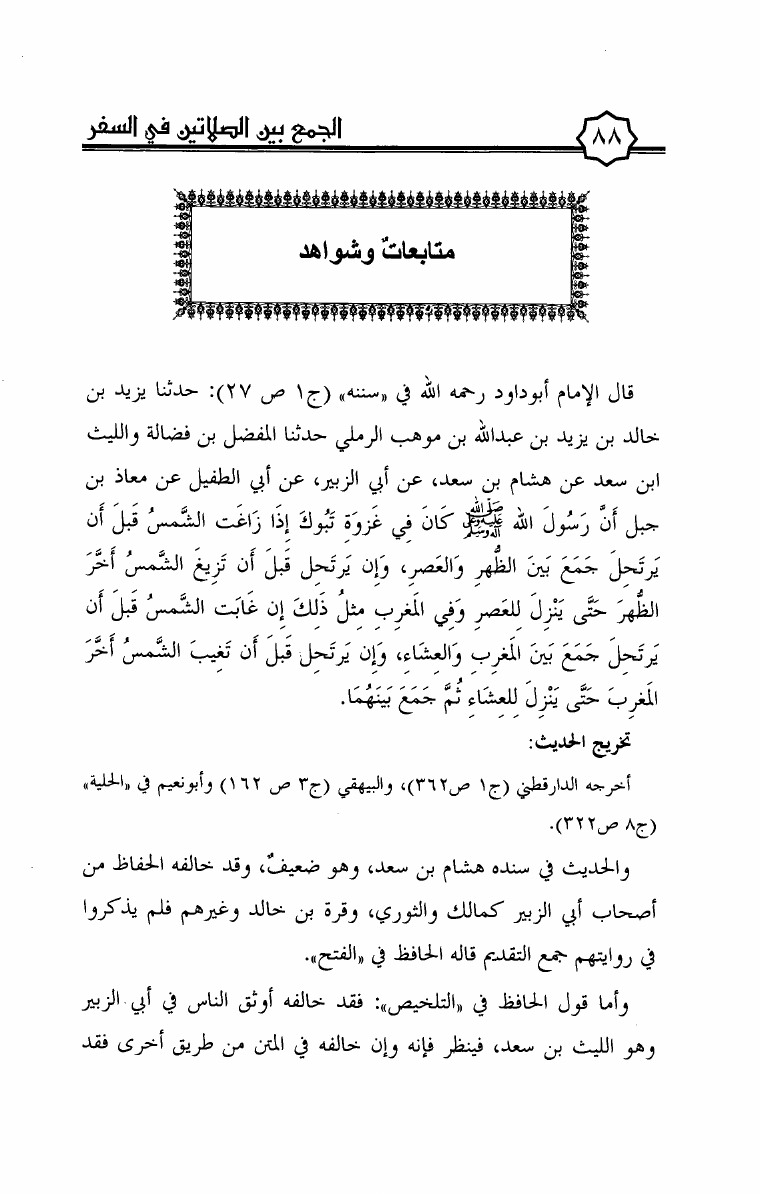 ٨٨
الجمع بين الصلاتين في السفر
متابعاتٌ وشواهد
قال الإمام أبوداود رحمه الله في «سننه» (ج١ ص ٢٧): حدثنا يزيد بن
خالد بن يزيد بن عبدالله بن موهب الرملي حدثنا المفضل بن فضالة والليث
ابن سعد عن هشام بن سعد، عن أبي الزبير، عن أبي الطفيل عن معاذ بن
جبل أَنَّ رَسُولَ الله ﷺ كَانَ فِي غَزوَةِ تَبُوكَ إِذَا زَاغَت الشَّمسُ قَبلَ أَن
يَرتَحِلَ جَمَعَ بَينَ الظُّهرِ وَالعَصرِ، وَإِن يَرتَحِل قَبلَ أَن تَزِيغَ الشَّمسُ أَخَّرَ
الظُّهرَ حَتَّى يَنْزِلَ لِلعَصرِ وَفِي المَغرِبِ مِثلُ ذَلِكَ إِن غَابَت الشَّمسُ قَبلَ أَن
يَرتَحِلَ جَمَعَ بَينَ المَغرِبِ وَالعِشَاءِ، وَإِن يَرتَحِل قَبلَ أَن تَغِيبَ الشَّمسُ أَخَّرَ
المَغرِبَ حَتَّى يَنْزِلَ لِلعِشَاءِ ثُمَّ جَمَعَ بَينَهُمَا.
تخريج الحديث:
أخرجه الدارقطني (ج١ ص٣٦٢)، والبيهقي (ج٣ ص ١٦٢) وأبونعيم في «الحلية»
(ج٨ ص٣٢٢).
والحديث في سنده هشام بن سعد، وهو ضعيفٌ، وقد خالفه الحفاظ من
أصحاب أبي الزبير كمالك والثوري، وقرة بن خالد وغيرهم فلم يذكروا
في روايتهم جمع التقديم قاله الحافظ في «الفتح».
وأما قول الحافظ في «التلخيص»: فقد خالفه أوثق الناس في أبي الزبير
وهو الليث بن سعد، فينظر فإنه وإن خالفه في المتن من طريق أخرى فقد